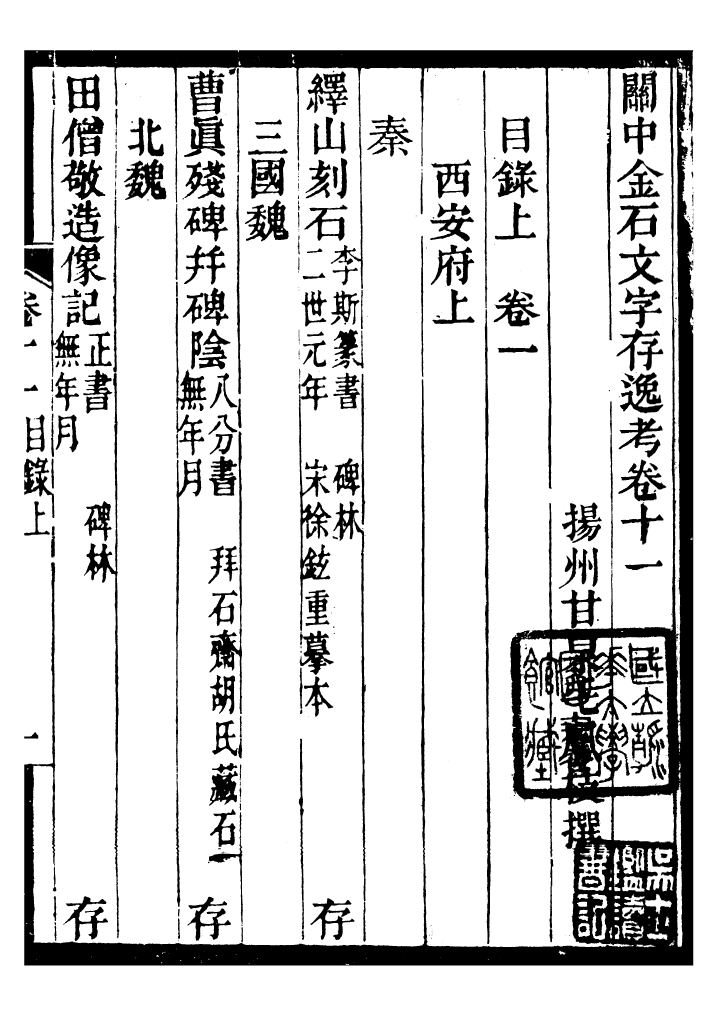 關中金石文字存逸考卷十一
揚州甘
撰
目錄上 卷一
西安府上
秦
繹山刻石 李斯篆書 碑林
二世元年 宋徐鉉重摹本 存
三國魏
曹眞殘碑幷碑陰 八分書
無年月 拜石齋胡氏藏石 存
北魏
田僧敬造像記 正書 碑林
無年月 存
卷十一目錄上
一
國立
大學
藏
書記